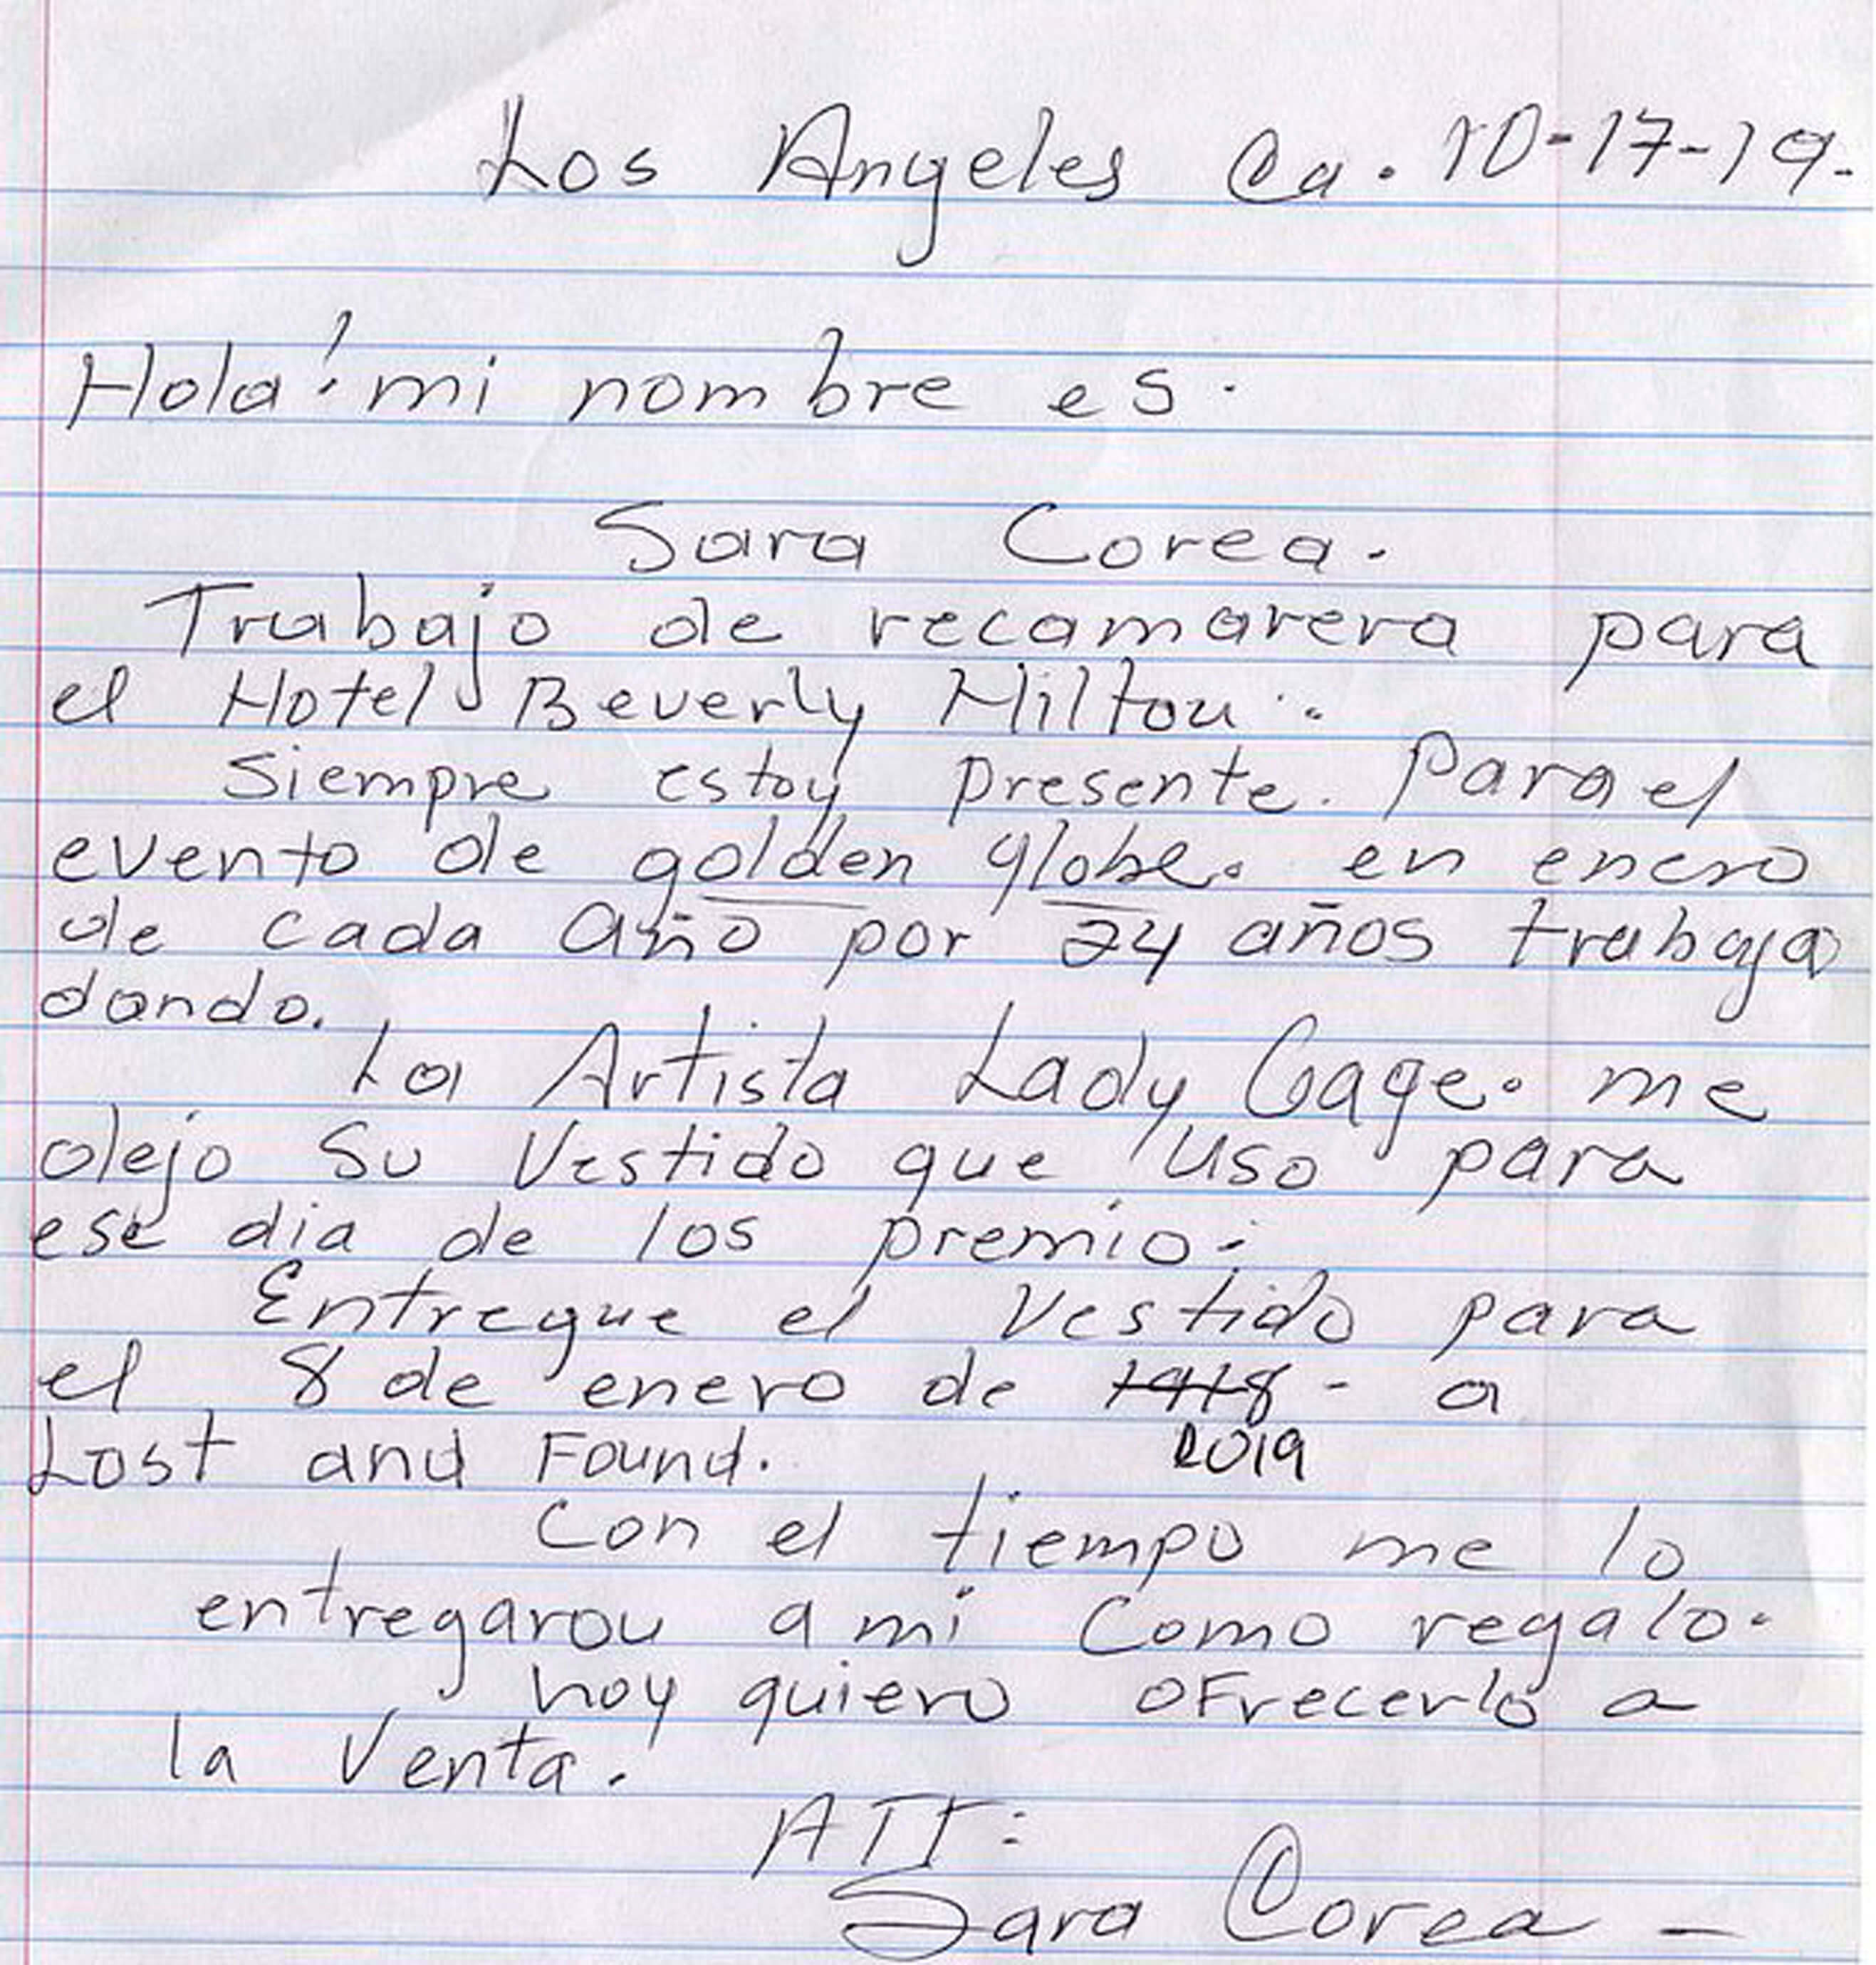 Los Angeles Ca. 10-17-19.
Hola! mi nombre es.
Sara Corea.
Trabajo de recamarera para
el Hotel Beverly Hilton.
Siempre estoy presente. Para el
evento de golden globe. en enero
de cada año por 24 años trabaja
dando.
La Artista Lady Gage. me
dejo su Vestido que uso para
ese dia de los premio.
Entregue el Vestido para
el 8 de enero de 1918 - a
Lost and Found. 2019
Con el tiempo me lo
entregarou a mi Como regalo.
hoy quiero ofrecerlo a
la Venta.
ATT:
Sara Corea -